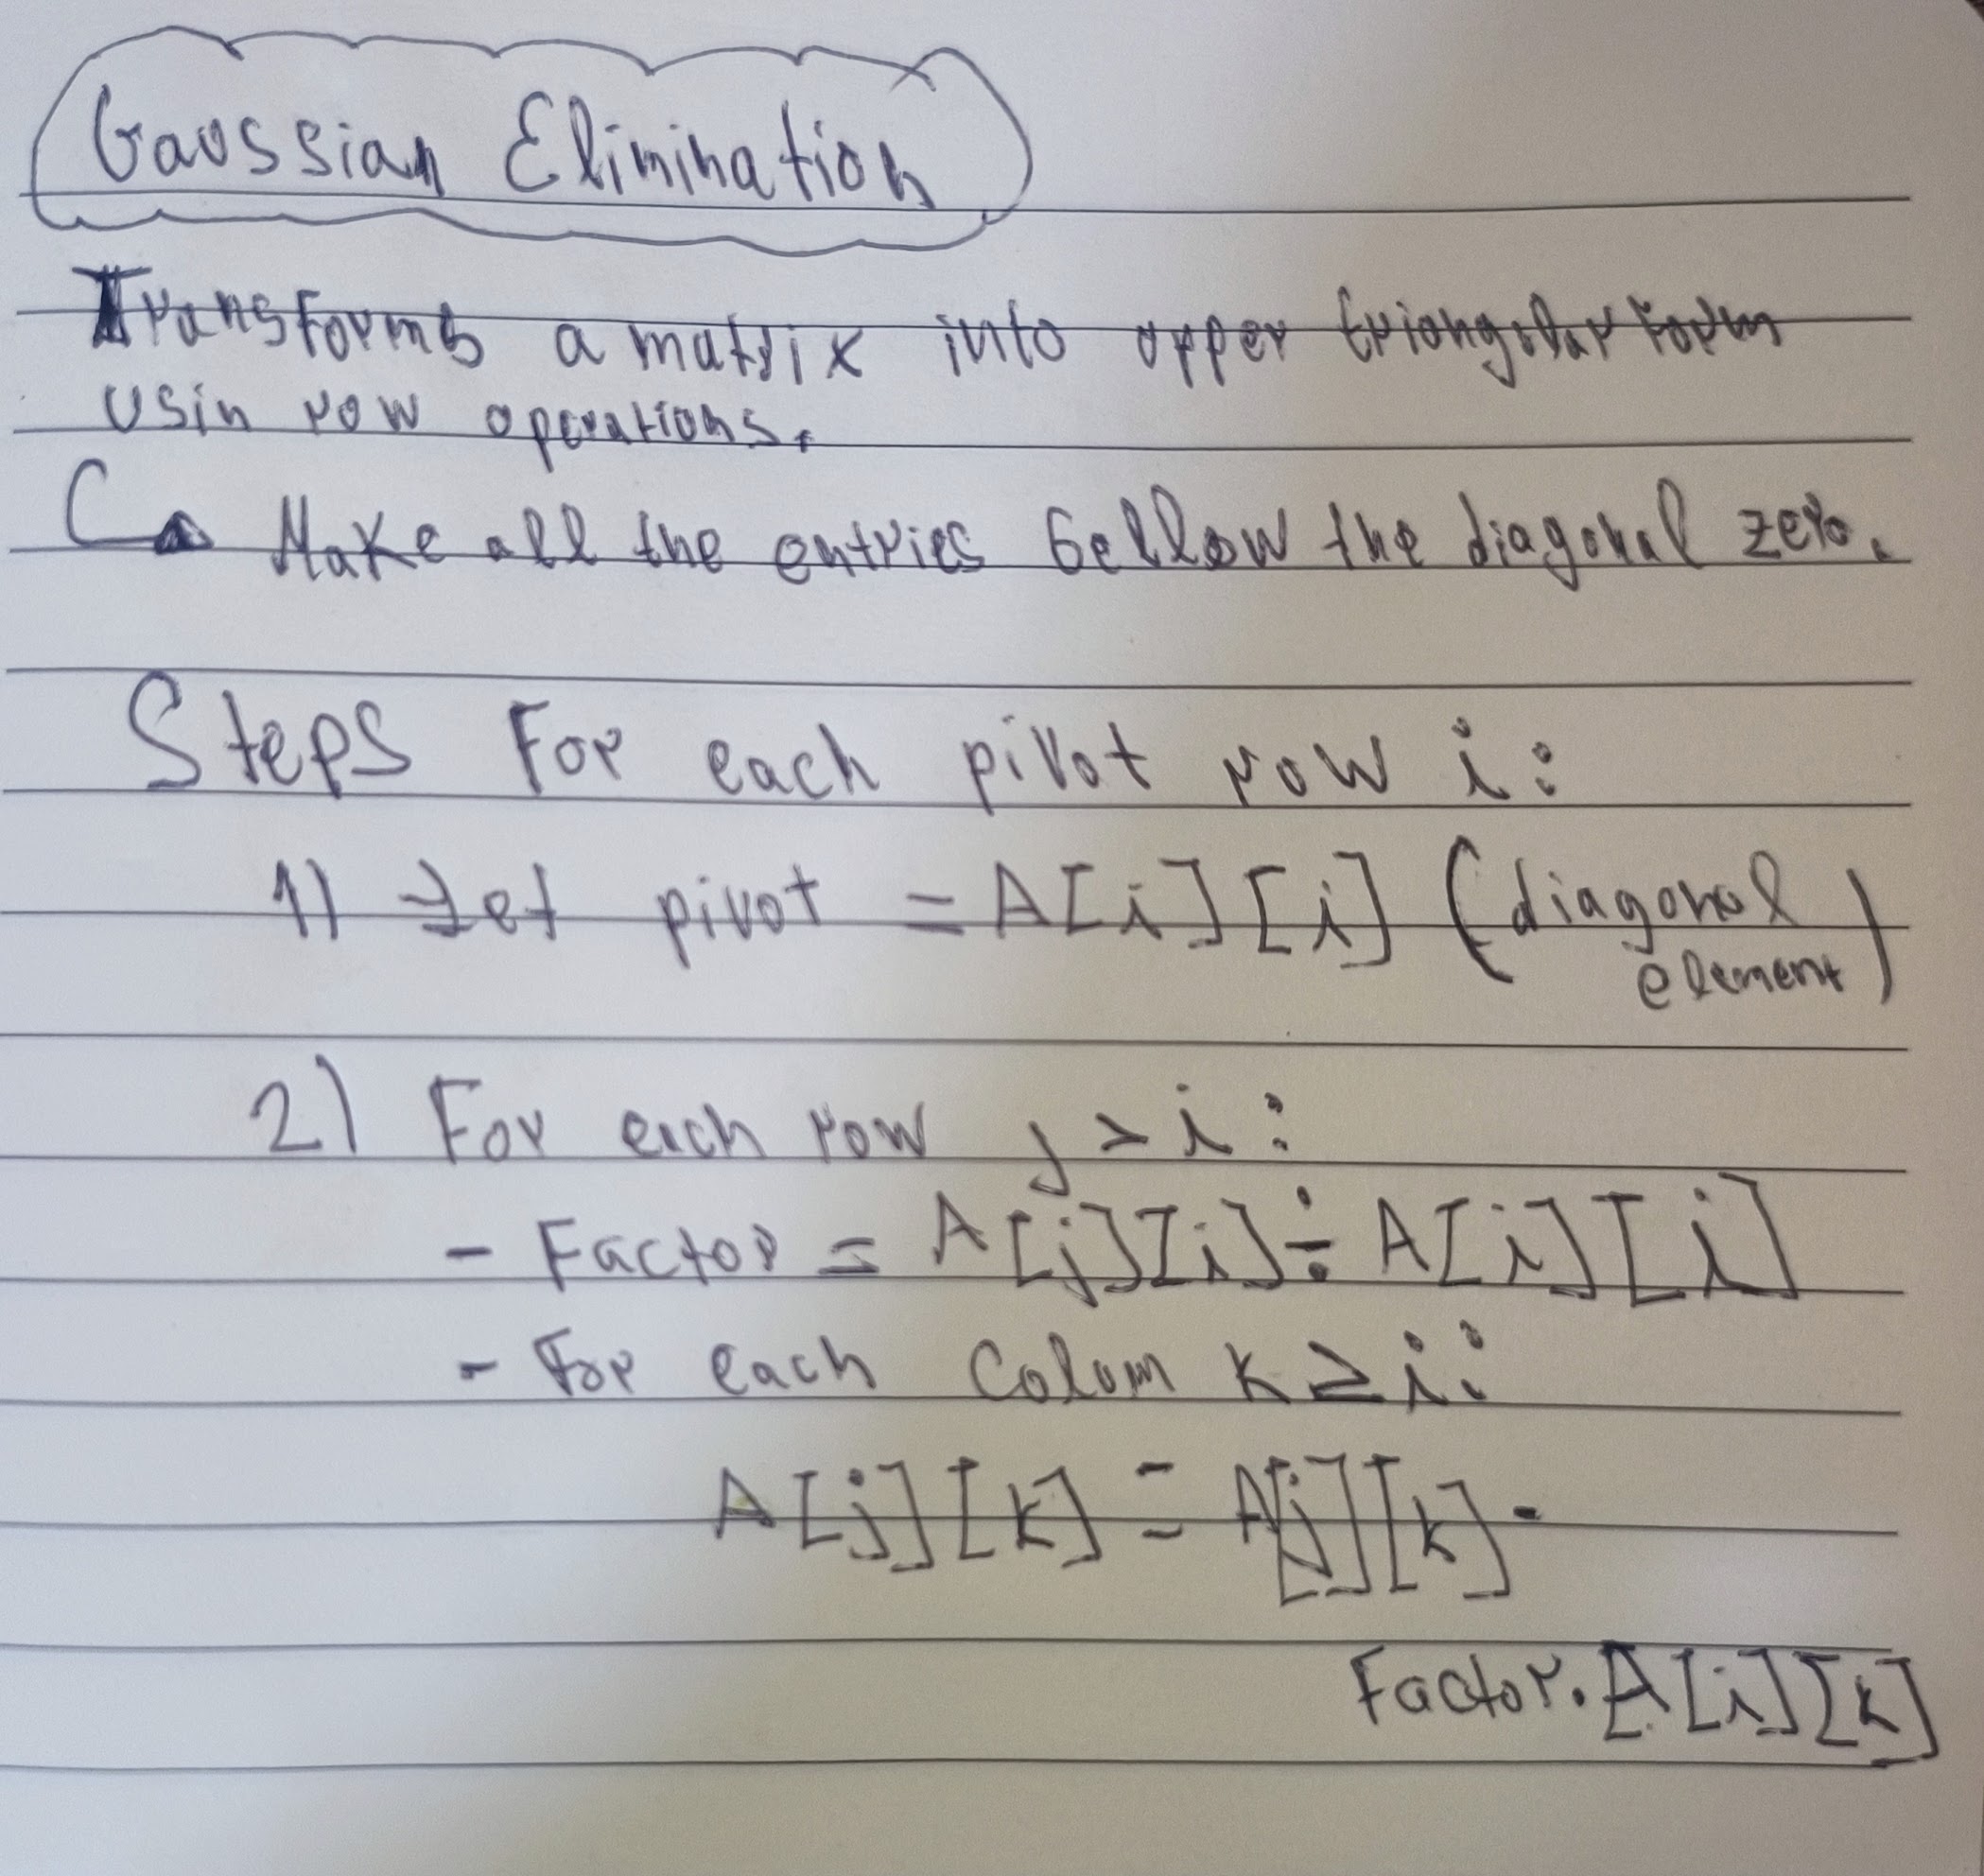 Gaussian Elimination
Transforms a matrix into upper triangular form
usin row operations.
Make all the entries bellow the diagonal zero.
Steps For each pivot row i:
1) Let pivot = A[i][i] (diagonal
element)
2) For each row j > i:
- Factor = A[j][i] ÷ A[i][i]
- For each Colum k ≥ i:
A[j][k] = A[j][k] -
Factor. A[i][k]